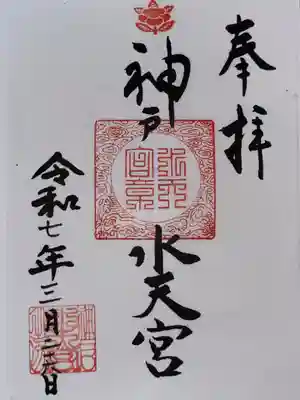 奉拝
神戸 水天宮
令和七年三月二十六日